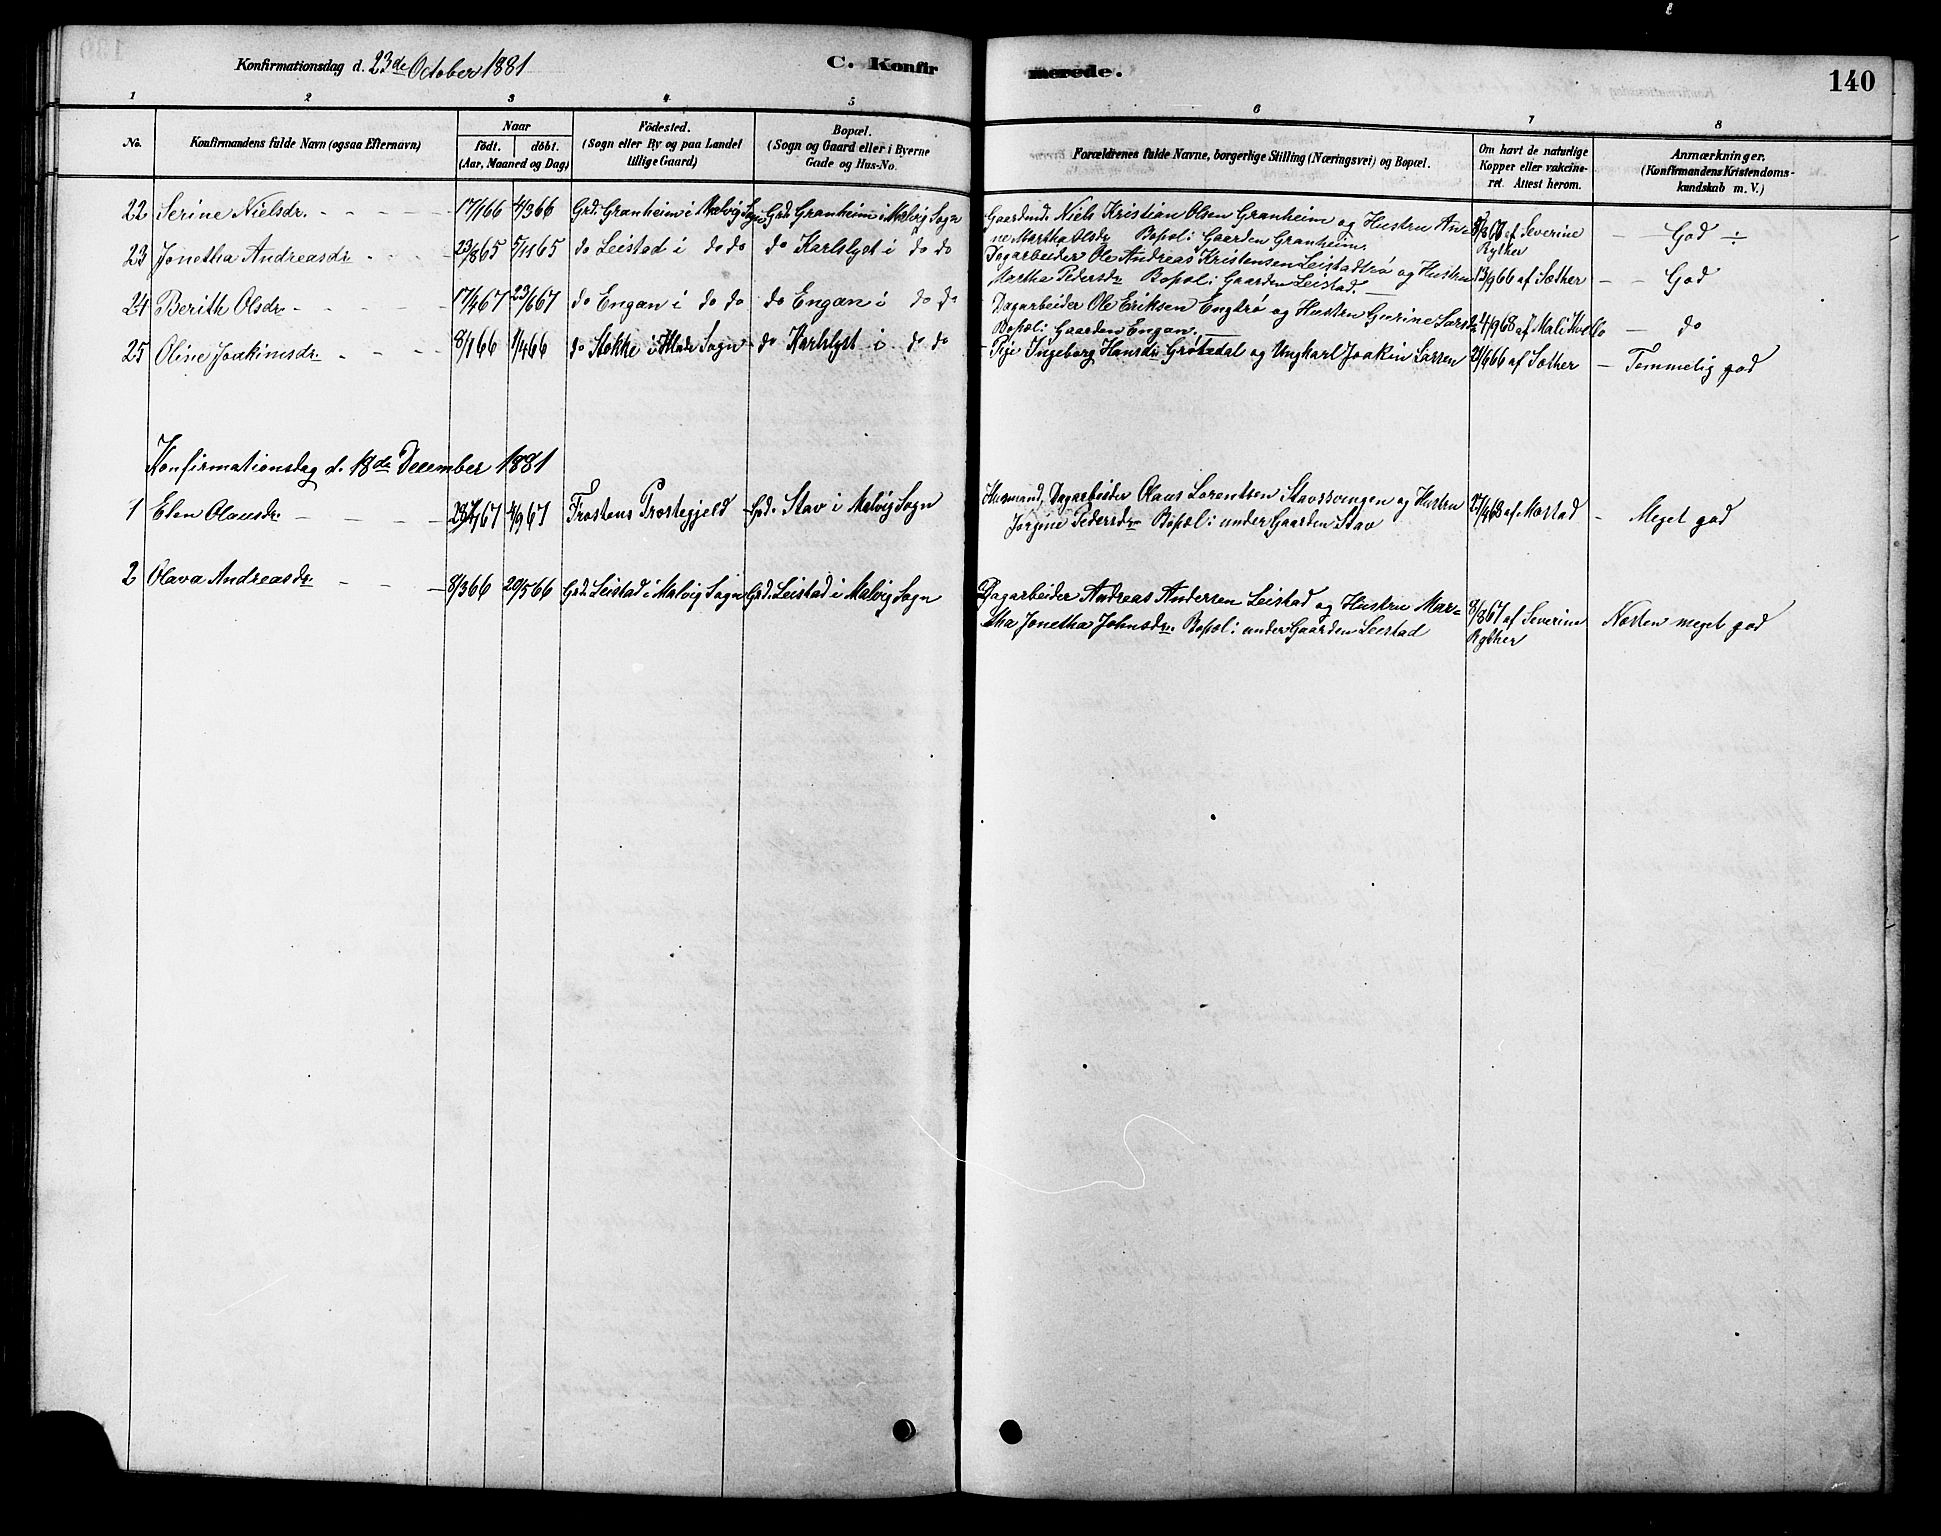 Konfirmationsdag d. 23de October 1881
C. Konfirmerede.
140
1 2 3 4 5 6 7 8
No.
Konfirmandens fulde Navn (ogsaa Efternavn)
Naar
födt. döbt.
(Aar, Maaned og Dag)
Födested.
(Sogn eller By og paa Landet
tillige Gaard)
Bopæl.
(Sogn og Gaard eller i Byerne
Gade og Hus-No.
Forældrenes fulde Navne, borgerlige Stilling (Næringsvei) og Bopæl.
Om havt de naturlige
Kopper eller vakcine-
ret. Attest herom.
Anmærkninger.
(Konfirmandens Kristendoms-
kundskab m. V.)
22 Serine Nielsdr. 17/1 66 4/3 66 Grd. Granheim i Malvig Sogn Grd. Granheim i Malvig Sogn Gaardmd. Niels Kristian Olsen Granheim og Hustru An-
ne Martha Olsdr Bopæl: Gaarden Granheim. 8/8 67 af Severine
Rygther — God ÷
23 Jonetha Andreasdr 23/8 65 5/11 65 do Leistad i do do do Karlslyst i do do Dagarbeider Ole Andreas Kristensen Leistadtrø og Hustru
Martha Pedersdr Bopæl: Gaarden Leistad. 13/9 66 af Sæther — God
24 Berith Olsdr 17/4 67 23/6 67 do Engan i do do do Engan i do do Dagarbeider Ole Eriksen Engtrø og Hustru Gurine Larsdr
Bopæl: Gaarden Engan. 4/9 68 af Mali — do
25 Oline Joakimsdr. 8/1 66 1/4 66 do Stokke i Sogn do Karlslyst i do do Pige Ingeborg Hansdr Grøtedal og Ungkarl Joakin Larsen 66 af Sæther — Temmelig god
Konfirmationsdag d. 18de December 1881
1 Elen Olausdr. 67 67 Frostens Prestegjeld Grd. Stav i Malvig Sogn Husmand, Dagarbeider Olaus Lorentsen Stavssvingen og Hustru
Jørgine Pedersdr Bopæl: under Gaarden Stav 27/4 68 af Mostad — Meget god
2 Olava Andreasdr. 8/3 66 20/5 66 Grd. Leistad i Malvig Sogn Grd. Leistad i Malvig Sogn Dagarbeider Andreas Andersen Leistad og Hustru Mar=
tha Jonetha Johnsdr. Bopæl: under Gaarden Leistad 8/8 67 af Severine
Rygther Næsten meget god